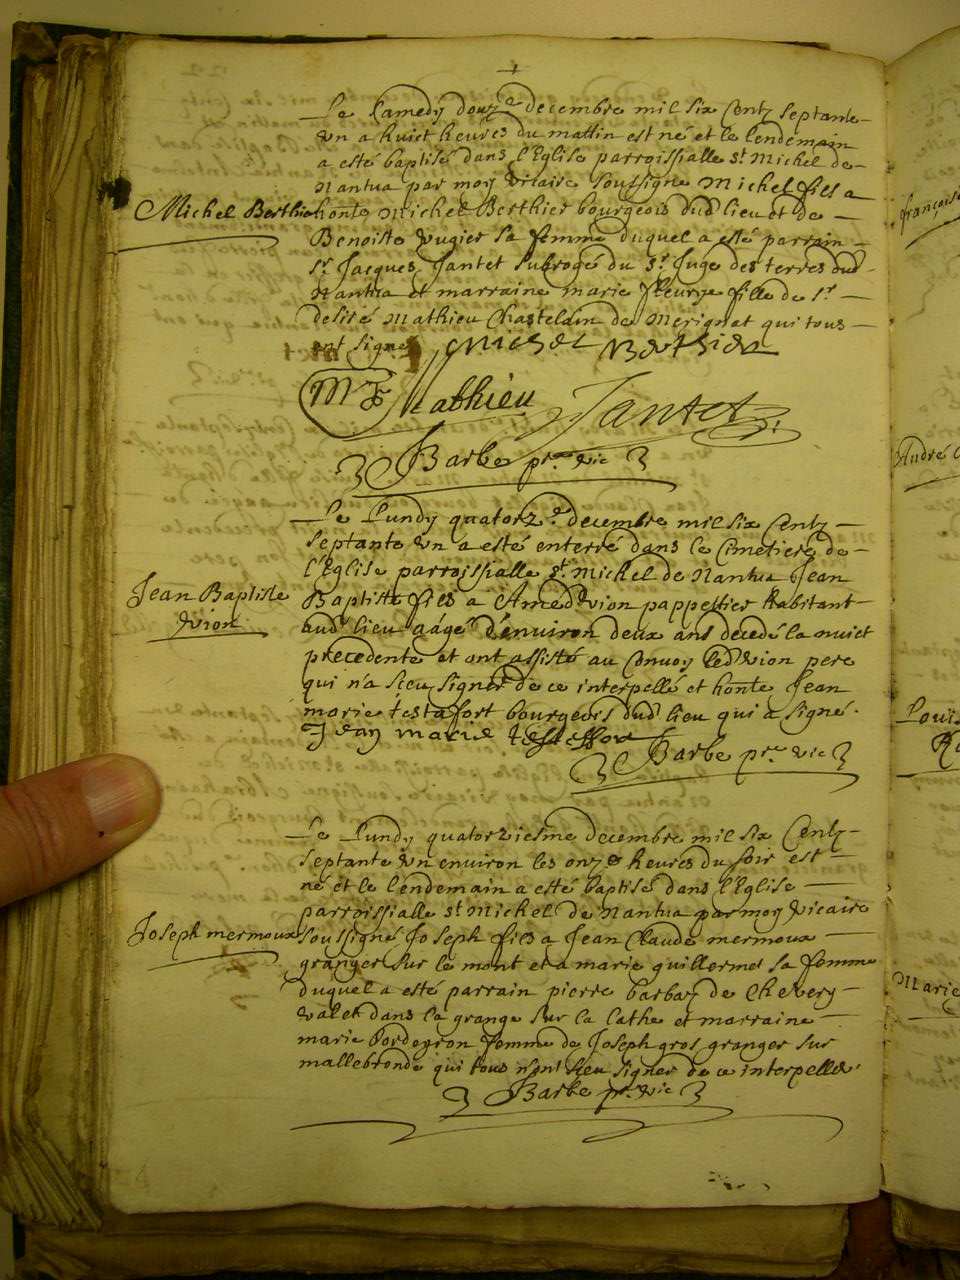 Le Samedy douz.e decembre mil six Centz septante
vn a huict heures du mattin est né et le lendemain
a esté baptisé dans l'Eglise parroissialle st Michel de
Nantua par moy vicaire soussigné Michel fils a
Michel Berthier
honte Michel Berthier bourgeois dud lieu et de
Benoiste vugier sa femme duquel a esté parrain
Sr Jacques Jantet subrogé du sr Juge des terres dud
Nantua et marraine marie fleurye fille de sr
desiré Mathieu Chastelain de Merignat qui tous
ont signé Michel Berthier
MF Mathieu Jantet
Barbe pr. vic
Le Lundy quatorz.e decembre mil six Centz
septante vn a esté enterré dans le Cimetiere de
l'Eglise parroissialle st Michel de Nantua Jean
Jean Baptiste
vion
Baptiste fils a Amed vion pappettier habitant
aud lieu aagé d'environ deux ans decedé la nuict
precedente et ont assisté au Convoy led vion pere
qui n'a sceu signer de ce interpellé et honte Jean
marie testafort bourgeois dud lieu qui a signé.
Jean marie testeffort
Barbe pr. vic
Le Lundy quatorziesme decembre mil six Centz
septante vn environ les onze heures du soir est
né et le lendemain a esté baptisé dans l'Eglise
parroissialle st Michel de Nantua par moy vicaire
Joseph mermoux
soussigné Joseph fils a Jean Claude mermoux
granger sur le mont et a marie guillermet sa femme
duquel a esté parrain pierre barbaz de Chevery
valet dans la grange sur la Cathe et marraine
marie femme de Joseph gros granger sur
mallebronde qui tous n'ont sceu signer de ce interpellés.
Barbe pr. vic
françoise
André
Louis
Marie